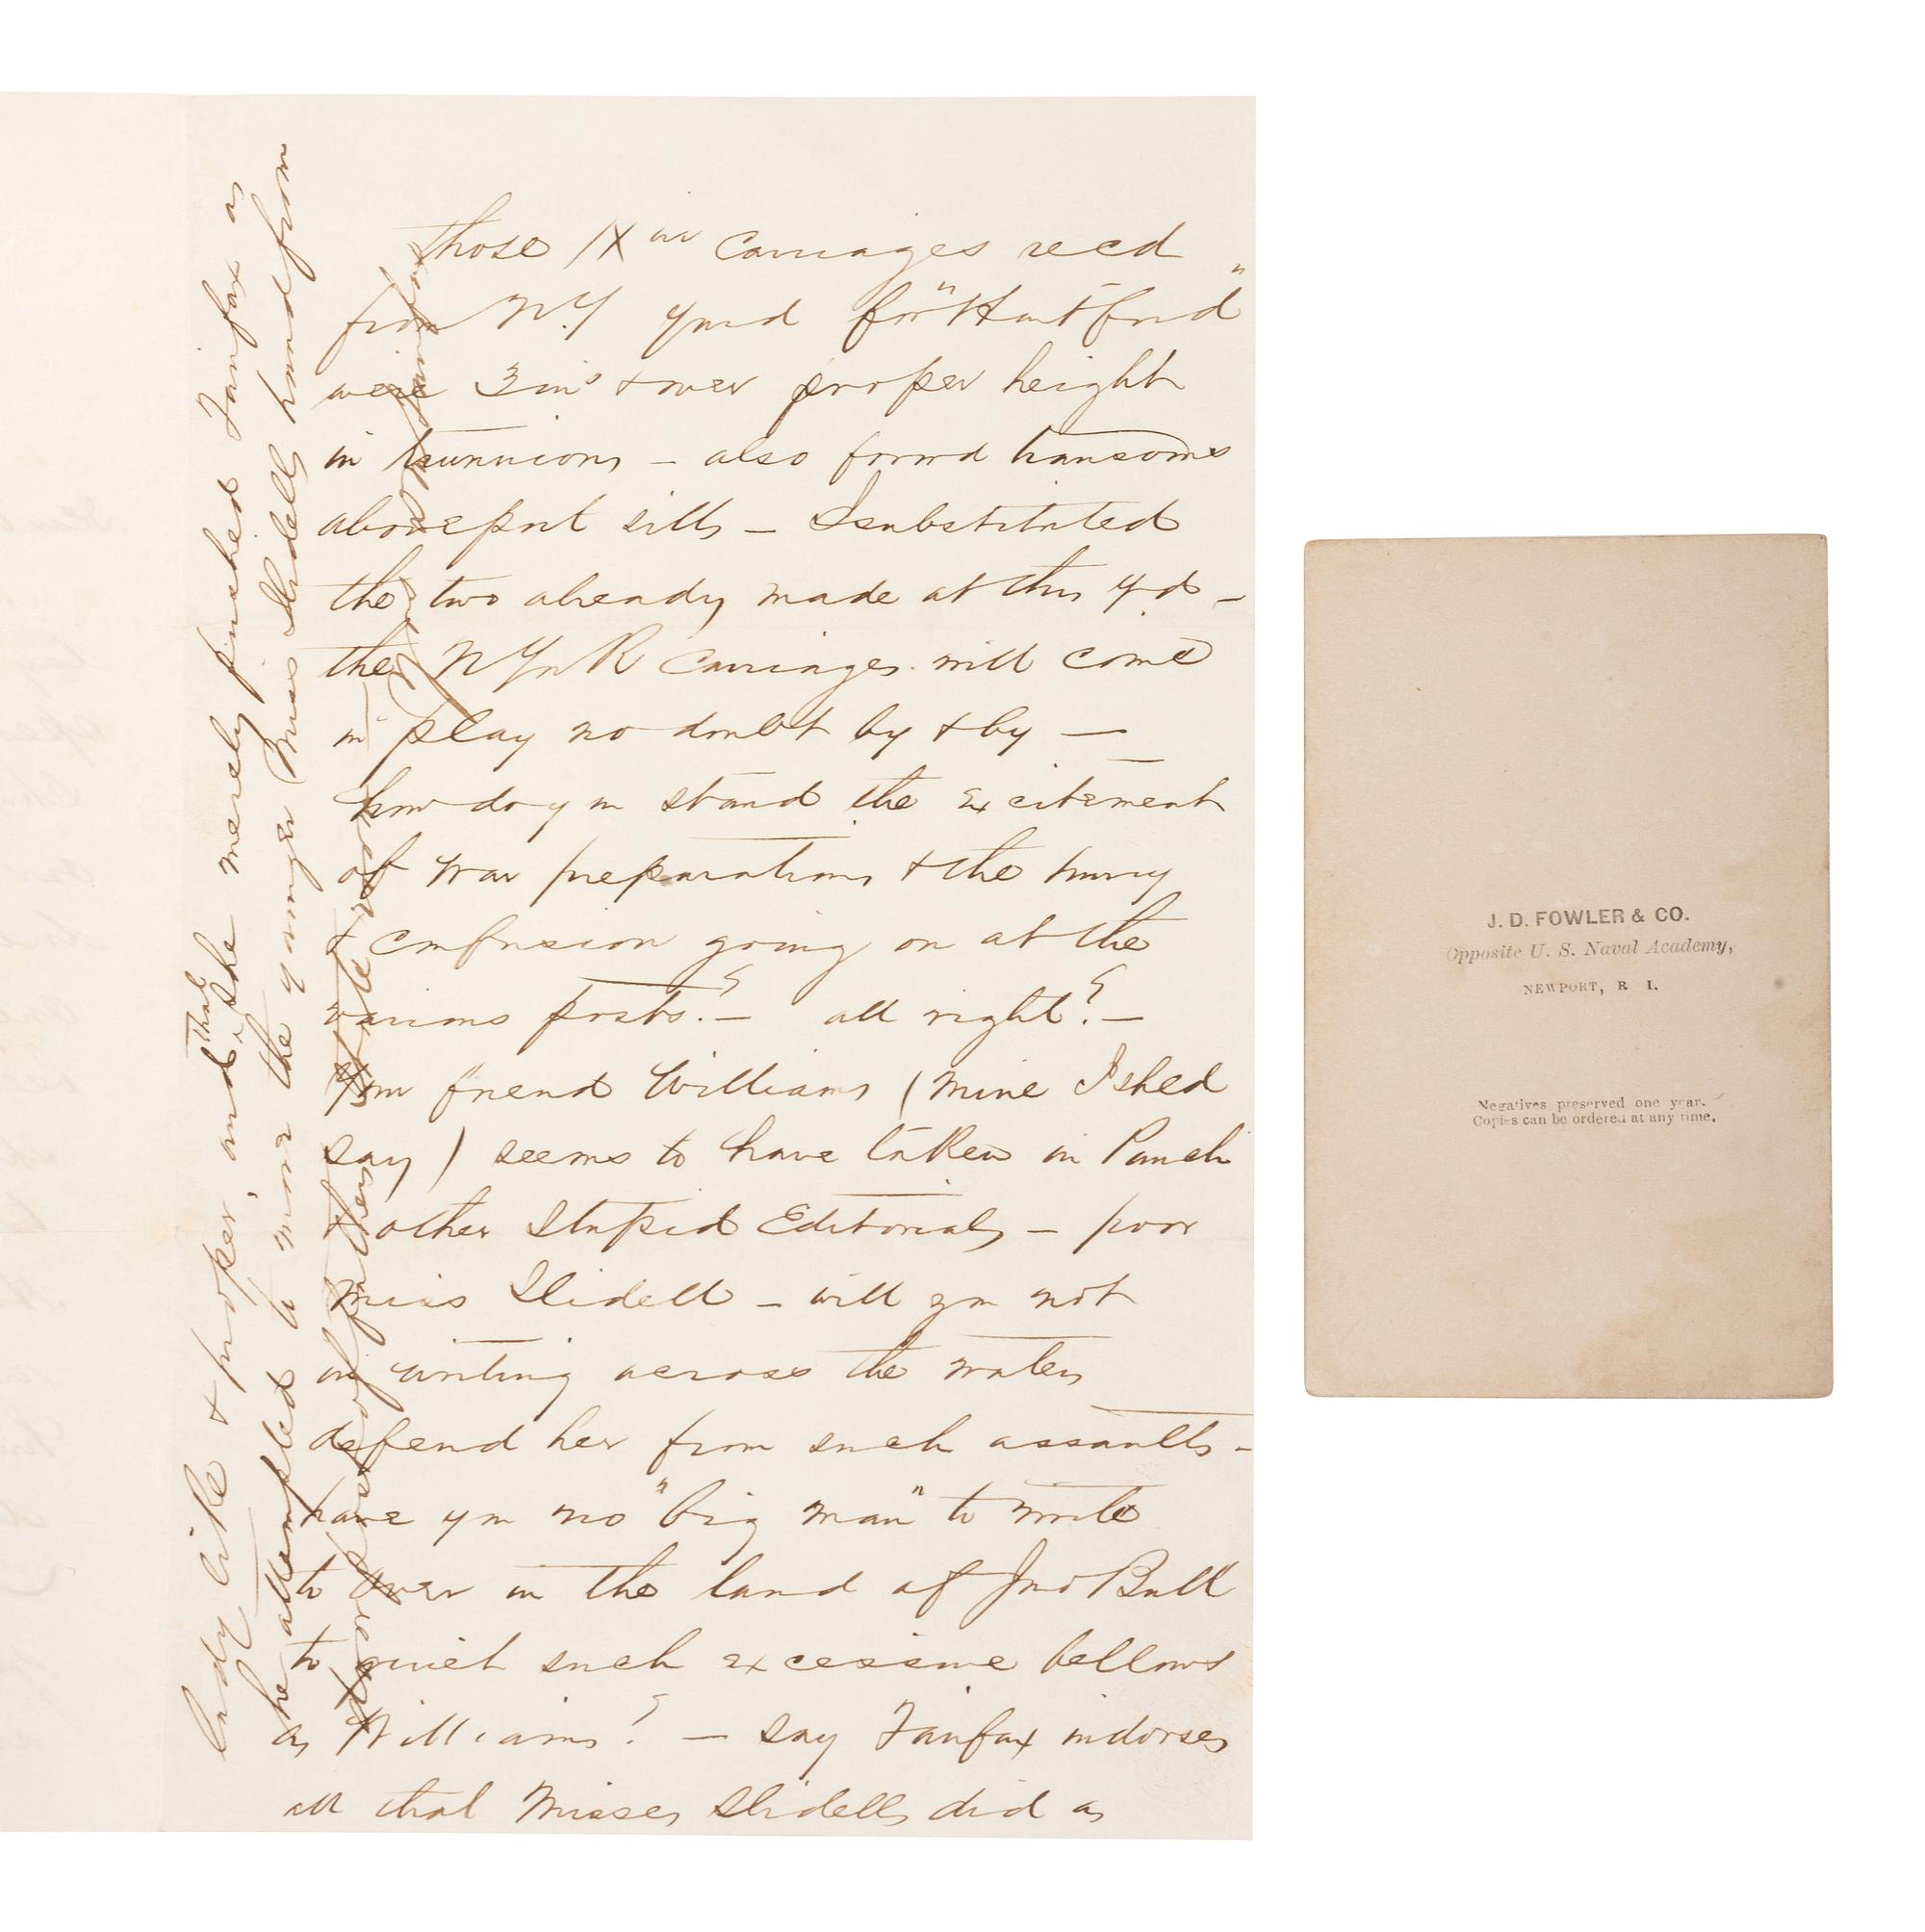 those IX in carriages recd
from N.Y yard for "Hartford"
were 3 ins + over proper height
in trunnions – also forrd transoms
above port sills – I substituted
the two already made at this yd –
the N Y carriages will come
in play no doubt by + by –
how do you stand the excitement
of war preparations + the hurry
+ confusion going on at the
various posts? – all right? –
Your friend Williams (mine I shd
say) seems to have taken in Punch
+ other Stupid Editorials – poor
Miss Slidell – will you not
in writing across the waters
defend her from such assaults –
have you no "big man" to write
to over in the land of Jno Bull
to quiet such excessive bellows
as Williams? – say Fairfax indorses
all that Misses Slidells did as
lady like + proper, and that she merely pushed Fairfax as
he attempted to move the younger Miss Slidells hand from
door of her father's state room
J. D. FOWLER & CO.
Opposite U. S. Naval Academy,
NEWPORT, R I.
Negatives preserved one year.
Copies can be ordered at any time.